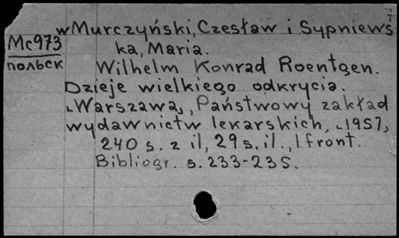 wMurczyński, Czesław i Sypniews
Mc973
ka, Maria.
польск
Wilhelm Konrad Roentgen.
Dzieje wielkiego odkrycia.
Warszawa, Państwowy zakład
wydawnictw lekarskich, 1957,
240 s. z il, 29 s. il., 1 front.
Bibliogr. s. 233-235.